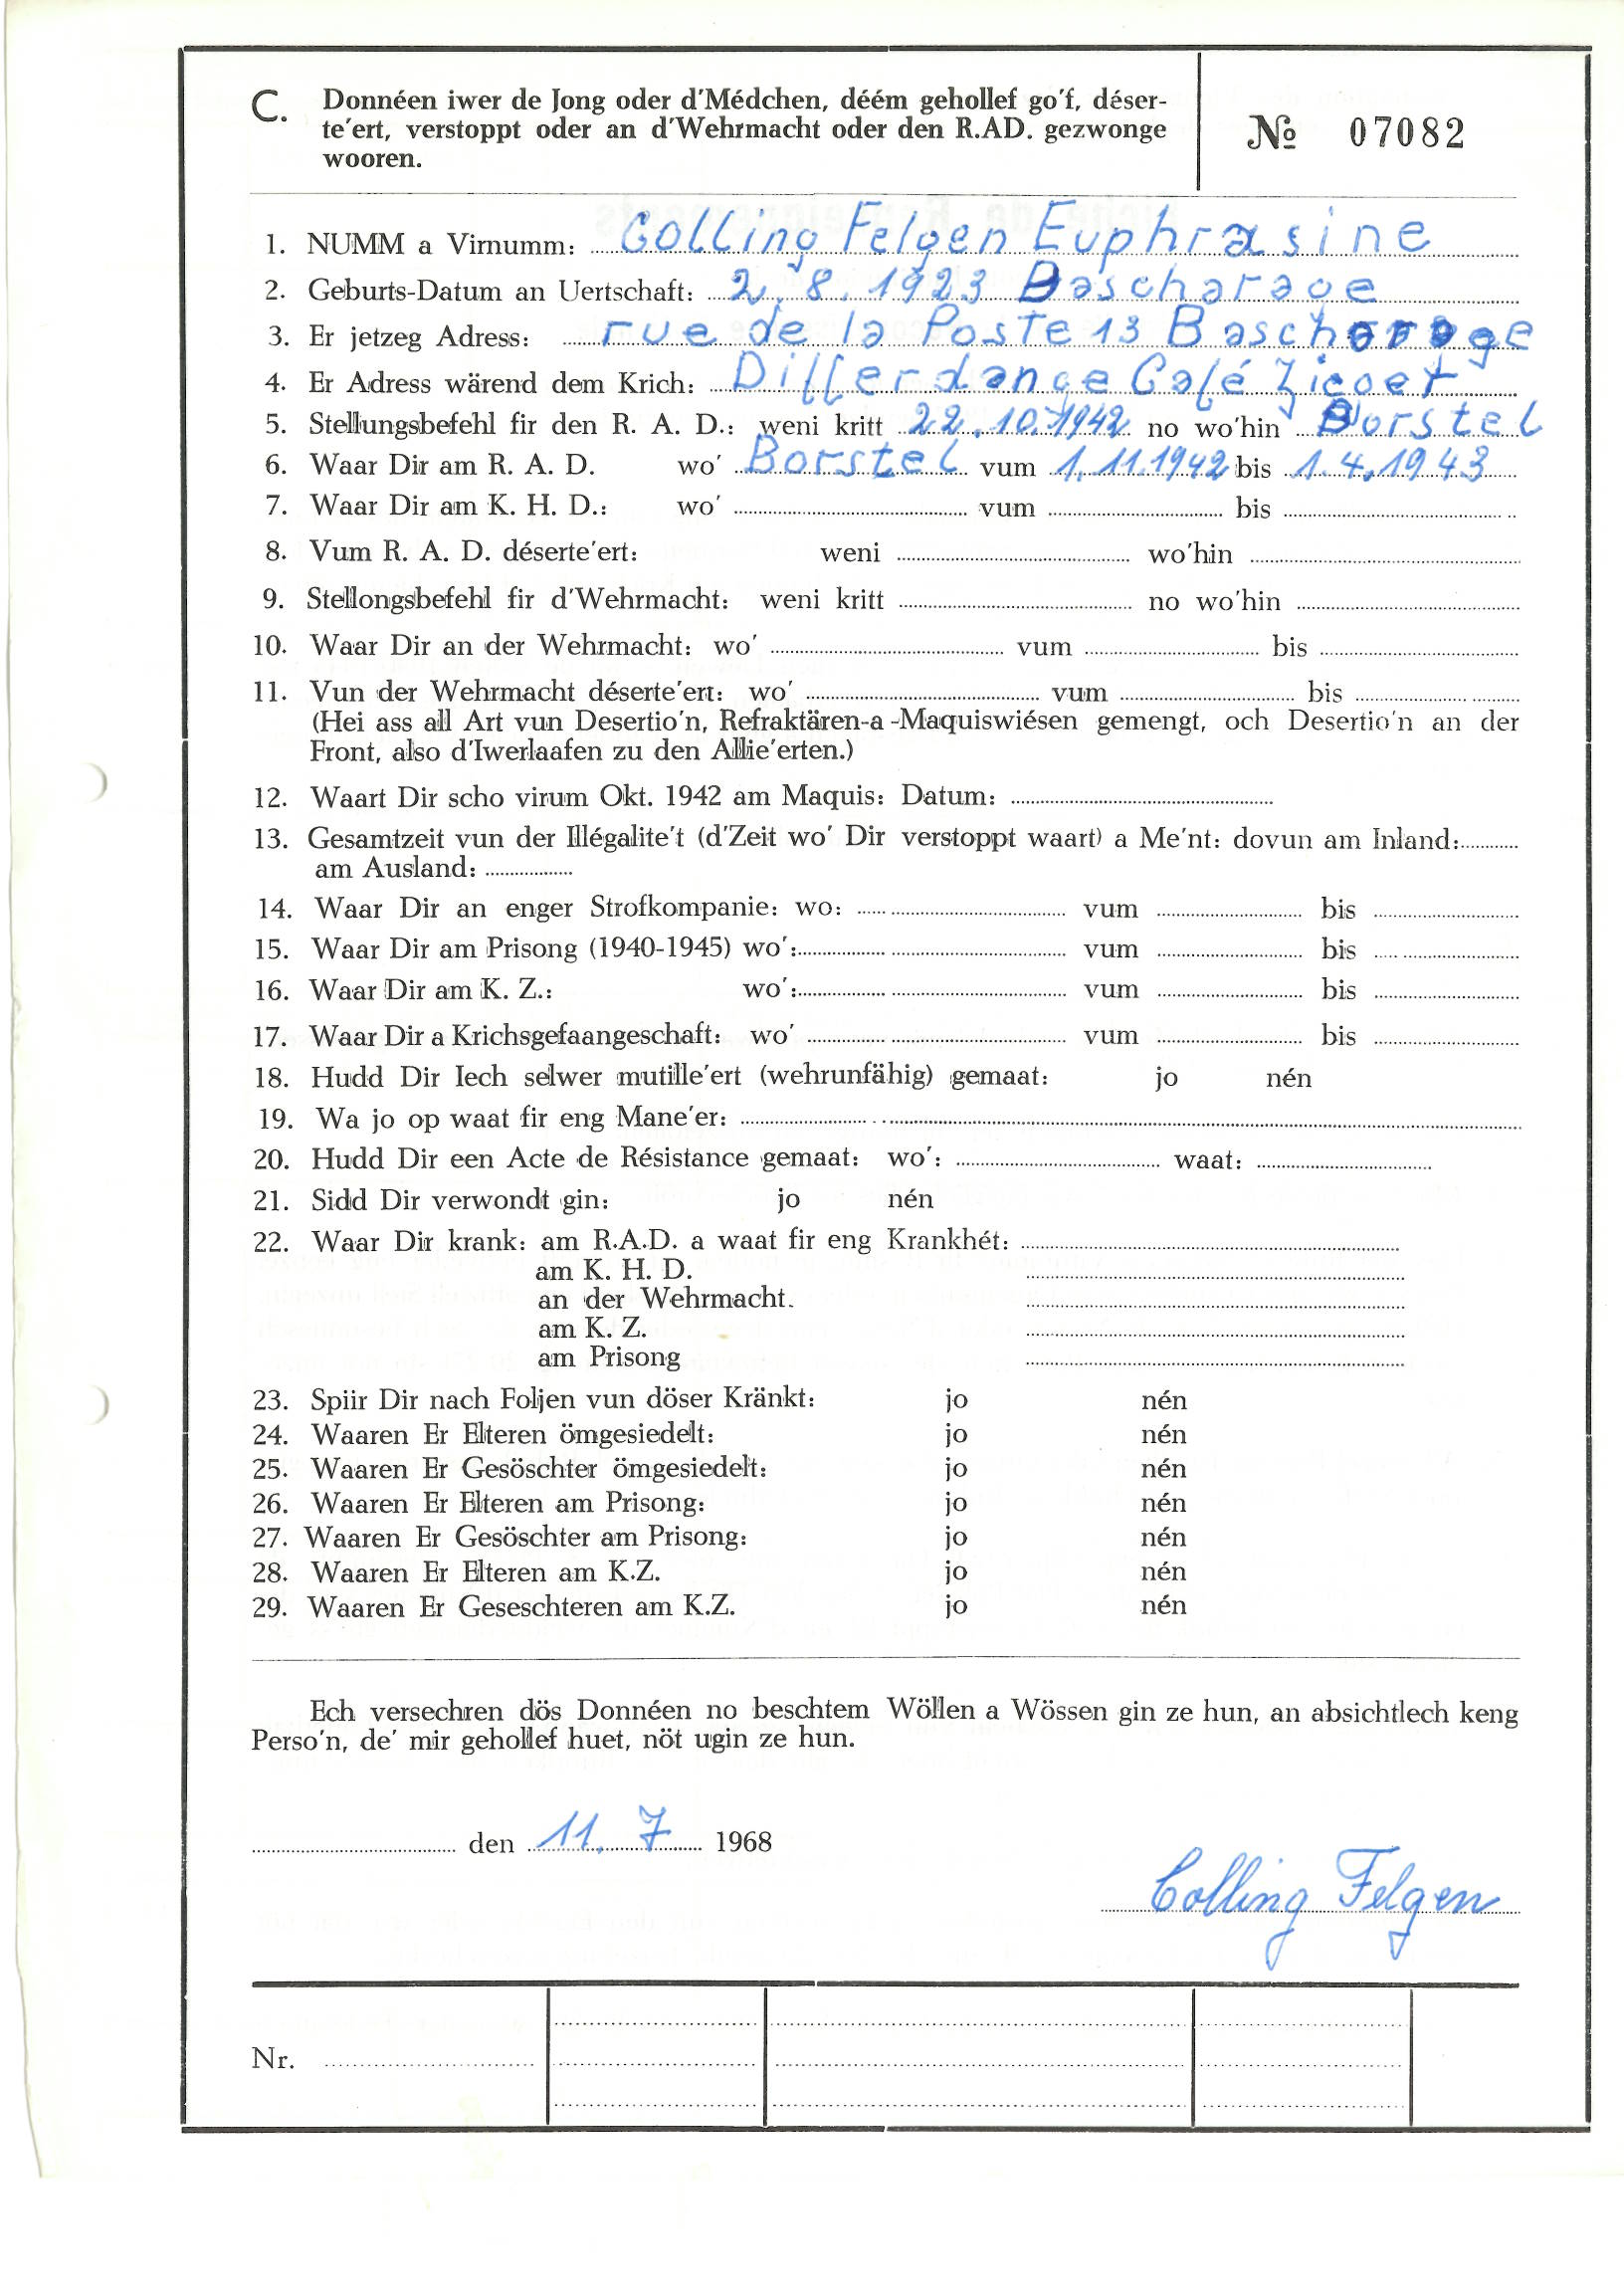 C. Donnéen iwer de Jong oder d'Médchen, déém gehollef go'f, déser-
te'ert, verstoppt oder an d'Wehrmacht oder den R.AD. gezwonge
wooren.
№ 07082
1. NUMM a Virnumm: Colling Felgen Euphrasine
2. Geburts-Datum an Uertschaft: 2. 8. 1923 Bascharage
3. Er jetzeg Adress: rue de la Poste 13 Bascharage
4. Er Adress wärend dem Krich: Differdange Café
5. Stellungsbefehl fir den R. A. D.: weni kritt 22. 10. 1942 no wo'hin Borstel
6. Waar Dir am R. A. D. wo' Borstel vum 1. 11. 1942 bis 1. 4. 1943
7. Waar Dir am K. H. D.: wo' vum bis
8. Vum R. A. D. déserte'ert: weni wo'hin
9. Stellongsbefehl fir d'Wehrmacht: weni kritt no wo'hin
10. Waar Dir an der Wehrmacht: wo' vum bis
11. Vun der Wehrmacht déserte'ert: wo' vum bis
(Hei ass all Art vun Desertio'n, Refraktären-a -Maquiswiésen gemengt, och Desertio'n an der
Front, also d'Iwerlaafen zu den Allie'erten.)
12. Waart Dir scho virum Okt. 1942 am Maquis: Datum:
13. Gesamtzeit vun der Illégalite't (d'Zeit wo' Dir verstoppt waart) a Me'nt: dovun am Inland:
am Ausland:
14. Waar Dir an enger Strofkompanie: wo: vum bis
15. Waar Dir am Prisong (1940-1945) wo': vum bis
16. Waar Dir am K. Z.: wo': vum bis
17. Waar Dir a Krichsgefaangeschaft: wo' vum bis
18. Hudd Dir Iech selwer mutille'ert (wehrunfähig) gemaat: jo nén
19. Wa jo op waat fir eng Mane'er:
20. Hudd Dir een Acte de Résistance gemaat: wo': waat:
21. Sidd Dir verwondt gin: jo nén
22. Waar Dir krank: am R.A.D. a waat fir eng Krankhét:
am K. H. D.
an der Wehrmacht.
am K. Z.
am Prisong
23. Spiir Dir nach Foljen vun döser Kränkt: jo nén
24. Waaren Er Elteren ömgesiedelt: jo nén
25. Waaren Er Gesöschter ömgesiedelt: jo nén
26. Waaren Er Elteren am Prisong: jo nén
27. Waaren Er Gesöschter am Prisong: jo nén
28. Waaren Er Elteren am K.Z. jo nén
29. Waaren Er Geseschteren am K.Z. jo nén
Ech versechren dös Donnéen no beschtem Wöllen a Wössen gin ze hun, an absichtlech keng
Perso'n, de' mir gehollef huet, nöt ugin ze hun.
den 11. 7 1968
Colling Felgen
Nr.